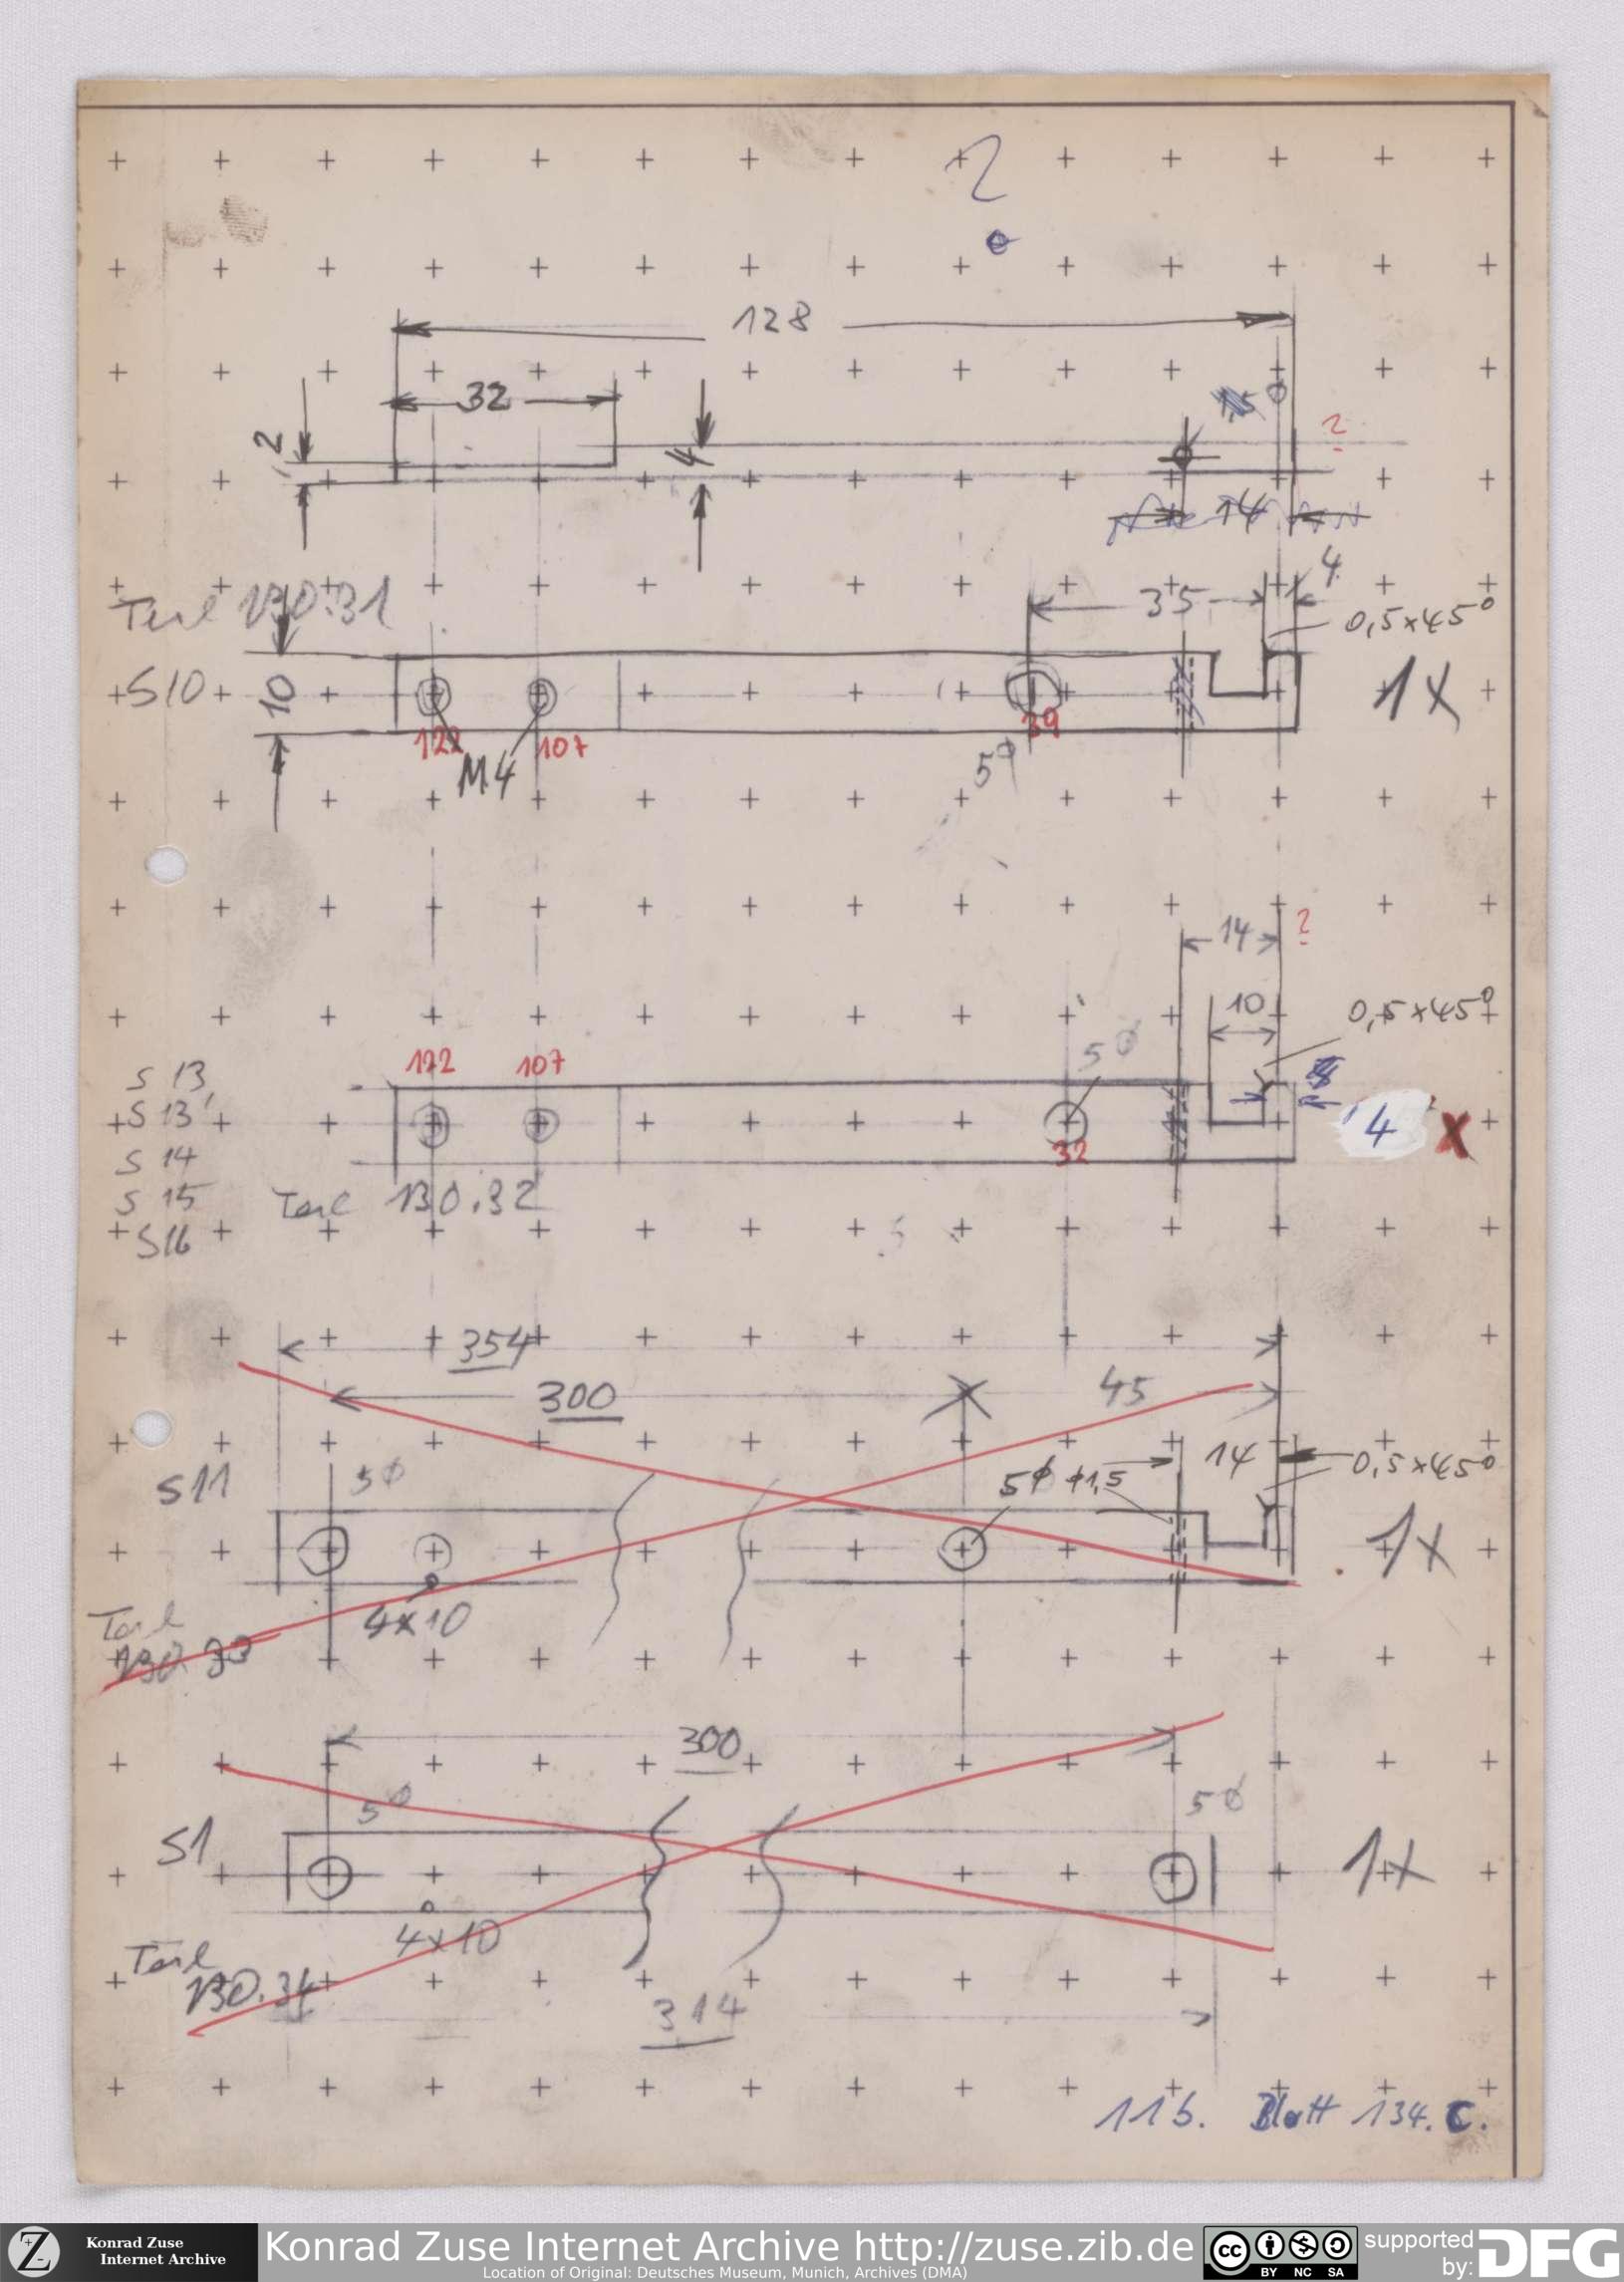 ?
128
32
1,5 ∅
2
4
?
14
4
35
0,5x45°
Teil 130.31
S10
10
1X
122
107
39
M4
5∅
14
?
10
0,5x45°
5∅
122
107
S 13
S 13'
4 X
S 14
32
S 15
Teil 130.32
S16
354
300
45
S11
5∅
5∅
1,5
14
0,5x45°
1x
4x10
Teil
130.33
300
5∅
5∅
S1
1x
4x10
Teil
130.34
314
116. Blatt 134.C.
Konrad Zuse
Internet Archive
Konrad Zuse Internet Archive http://zuse.zib.de
Location of Original: Deutsches Museum, Munich, Archives (DMA)
cc
BY NC SA
supported
by: DFG